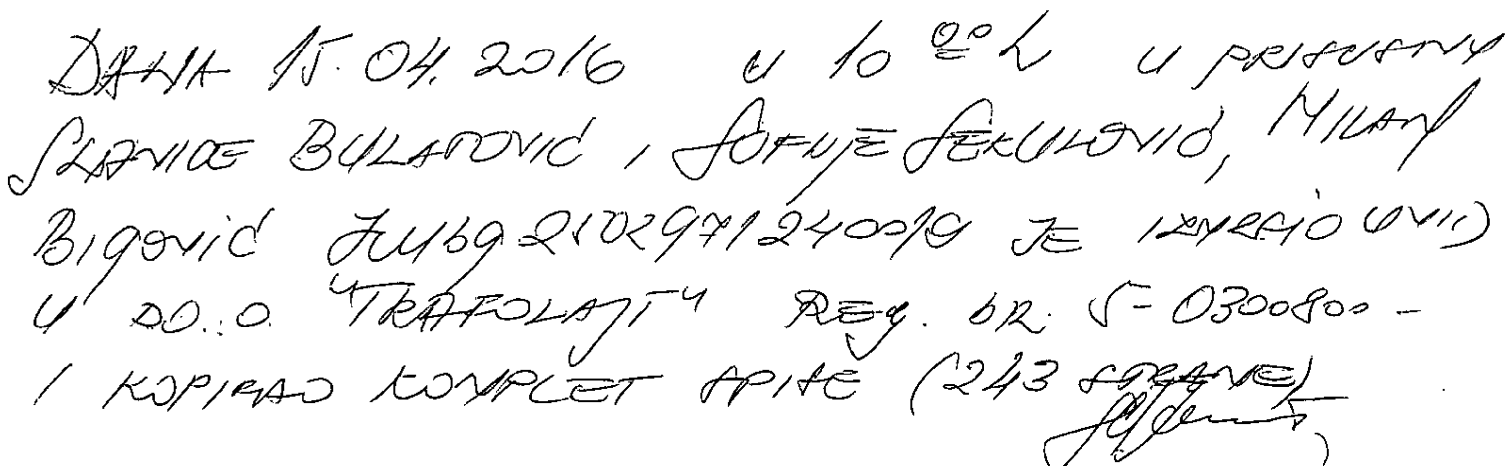 DANA 15.04.2016 u 10 00 h u PRISUSTVU
SLAVICE BULATOVIĆ, SOFIJE SEKULOVIĆ, MILAN
BIGOVIĆ JMBG 2102971240019 JE IZVRŠIO UVID
U D.O.O. "TRAFOLAJT" REG. BR. 5-0300800 -
I KOPIRAO KOMPLET SPISE (243 STRANE)